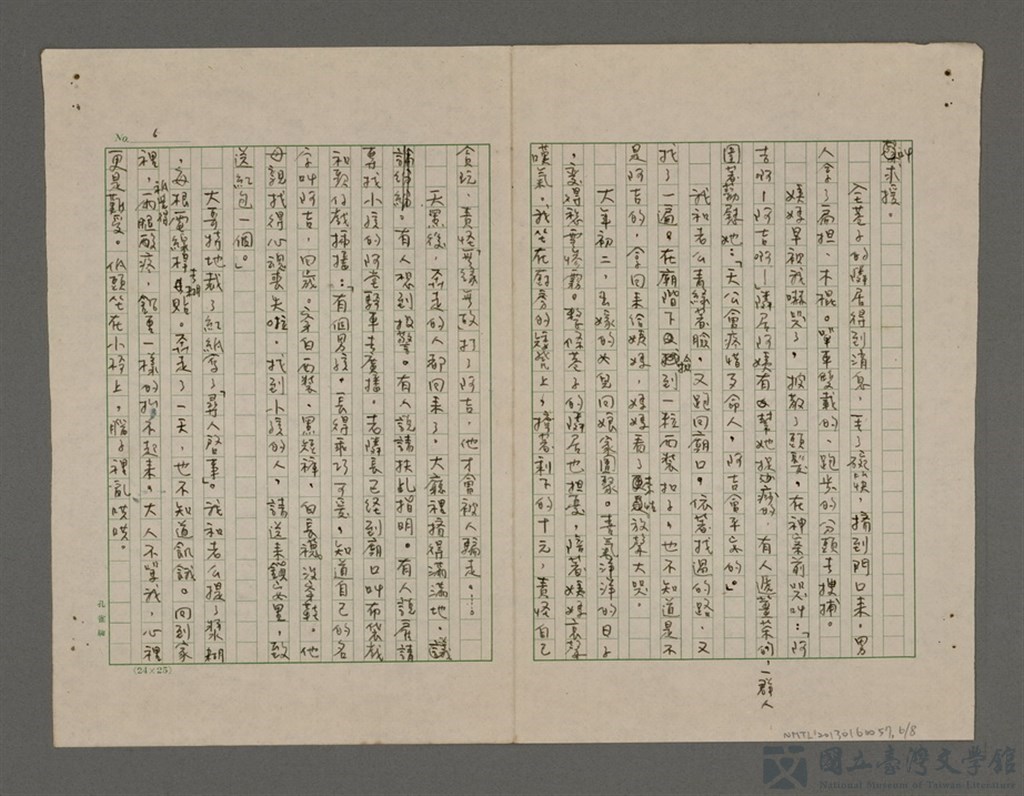 叫求援。
全巷子的隣居得到消息，丟了碗筷，擠到門口來，男
人拿了扁担、木棍。單車雙載的、跑步的分頭去搜捕。
姨媽早被我嚇哭了，披散了頭髮，在神案前哭叫：「阿
吉啊！阿吉啊！」隣居阿姨有幫她捉痧的，有人遞薑茶的，一群人
圍著勸慰她：「天公會疼惜歹命人，阿吉會平安的。」
我和老么青綠著臉，又跑回廟口，依著找過的路，又
找了一遍。在廟階下撿到一粒西裝扣子，也不知道是不
是阿吉的，拿回來給姨媽，姨媽看了放聲大哭。
大年初二，出嫁的女兒回娘家團聚。喜氣洋洋的日子
，變得愁雲慘霧。整條巷子的隣居也担憂，陪著姨媽哀聲
嘆氣。我坐在廚房的矮凳上，捧著剩下的十元，責怪自己
No 6
貪玩，責怪「無緣無故」打了阿吉，他才會被人騙走。……
天黑後，奔走的人都回來了。大廳裡擠得滿滿地，議
論紛紛。有人想到報警。有人說請扶乩指明。有人說雇請
專找小孩的阿堂騎車去廣播，老隣長已經到廟口叫布袋戲
和歌仔戲插播：「有個男孩，長得乖巧可愛，知道自己的名
字叫阿吉，四歲。穿白西裝、黑短褲，白長襪沒穿鞋。他
母親找得心魂喪失啦，找到小孩的人，請送來鎮安里，致
送紅包一個。」
大哥特地裁了紅紙寫了「尋人啟事」。我和老么提了漿糊
，每根電線桿去糊貼。奔走了一天，也不知道飢餓。回到家
裡，祇覺得兩腿酸疼，鉛重一樣的抬不起來。大人不罵我，心裡
更是難受。低頭坐在小凳上，腦子裡亂哄哄。
(24×25)
NMTL20130160057, 6/8
國立臺灣文學館
National Museum of Taiwan Literature